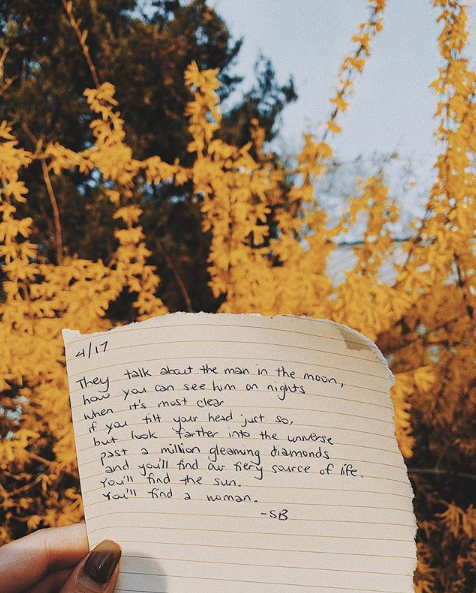 4/17
They talk about the man in the moon,
how you can see him on nights
when it's most clear
if you tilt your head just so,
but look farther into the universe
past a million gleaming diamonds
and you'll find our fiery source of life.
You'll find the sun.
You'll find a woman.
-SB